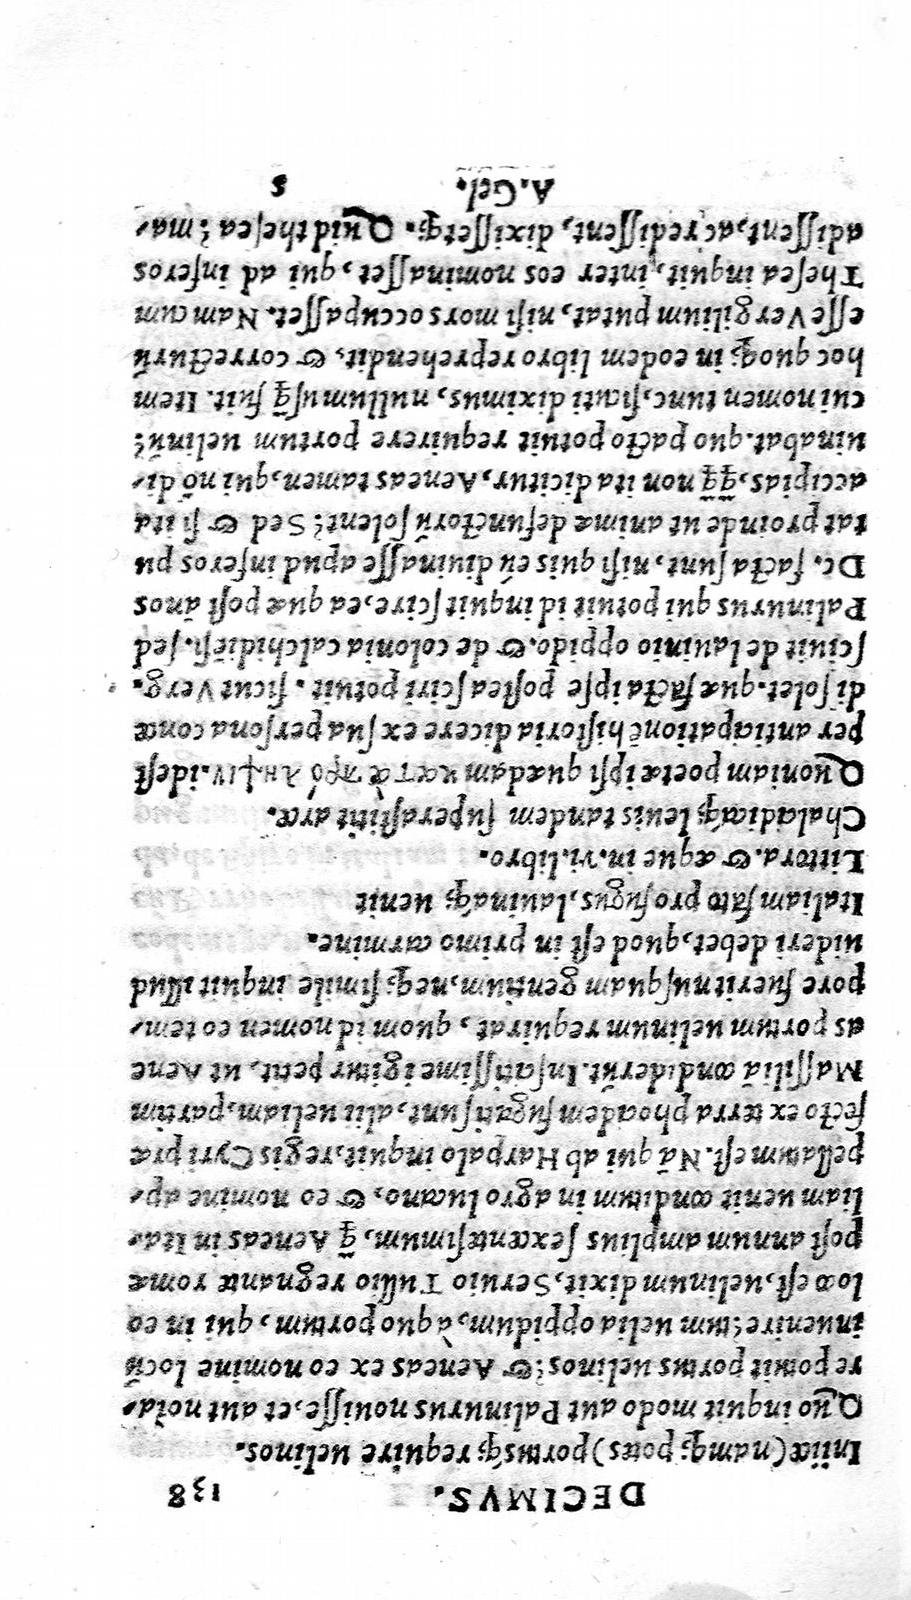 DECIMVS. 138
Iniice (namq; potes) portusq́; require uelinos.
Quo inquit modo aut Palinurus nouisse, et aut noĩa-
re potuit portus uelinos; & Aeneas ex eo nomine locũ
inuenire; tum uelia oppidum, à quo portum, qui in eo
loco est, uelinum dixit, Seruio Tullio regnante romæ
post annum amplius sexcentesimum, q̃ Aeneas in Ita-
liam uenit conditum in agro lucano, & eo nomine ap-
pellatum est. Nã qui ab Harpalo inquit, regis Cyri præ
fecto ex terra phocidem fugati sunt, alii ueliam, partim
Massiliã condiderũt. Insatissime igitur petit, ut Aene
as portum uelinum requirat, quom id nomen eo tem-
pore fuerit nusquam gentium, neq; simile inquit illud
uideri debet, quod est in primo carmine.
Italiam fato profugus, lauinaq́; uenit
Littora. & æque in. vi. libro.
Chalcidicaq́; leuis tandem super astitit arce.
Quoniam poetæ ipsi quædam κατὰ πρόληψιν. idest
per anticipationẽ historia dicere ex sua persona conce
di solet. quæ facta ipse postea sciri potuit. sicut Verg.
sciuit de lauinio oppido. & de colonia calchidiẽsi. sed
Palinurus qui potuit id inquit scire, ea quæ post ãnos
Dc. facta sunt, nisi quis eũ diuinasse apud inferos pu
tat proinde ut animæ defunctorũ solent; Sed & si ita
accipias, q̃q̃ non ita dicitur, Aeneas tamen, qui nõ di-
uinabat. quo pacto potuit requirere portum uelinũ;
cui nomen tunc, sicuti diximus, nullum usq̃ fuit. Item
hoc quoq; in eodem libro reprehendit, & correcturũ
esse Vergilium putat, nisi mors occupasset. Nam cum
Thesea inquit, inter eos nominasset, qui ad inferos
adissent, ac redissent, dixissetq;. Quid thesea; ma-
A. Gel. s